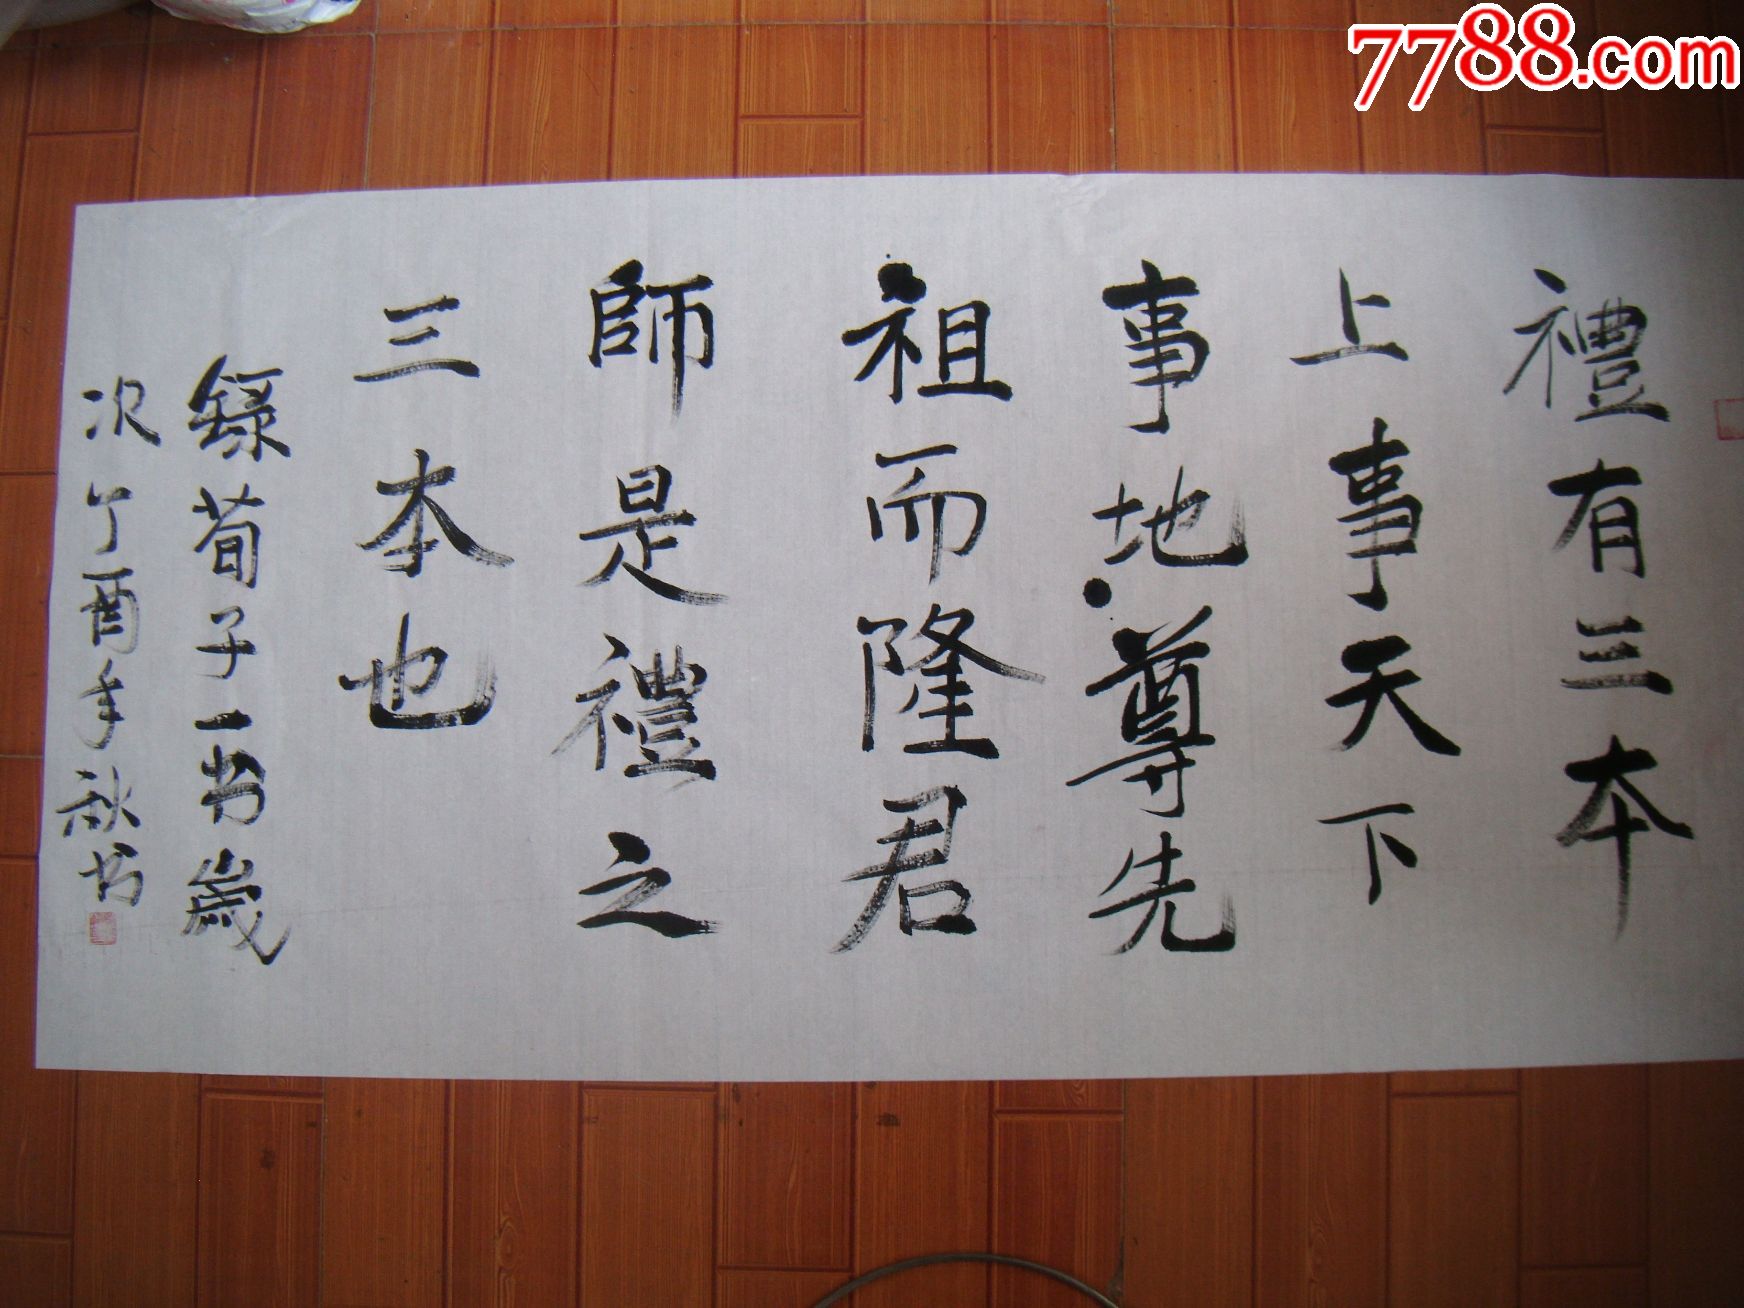 7788.com
禮有三本
上事天下
事地尊先
祖而隆君
師是禮之
三本也
録荀子一书歲
次丁酉年秋书